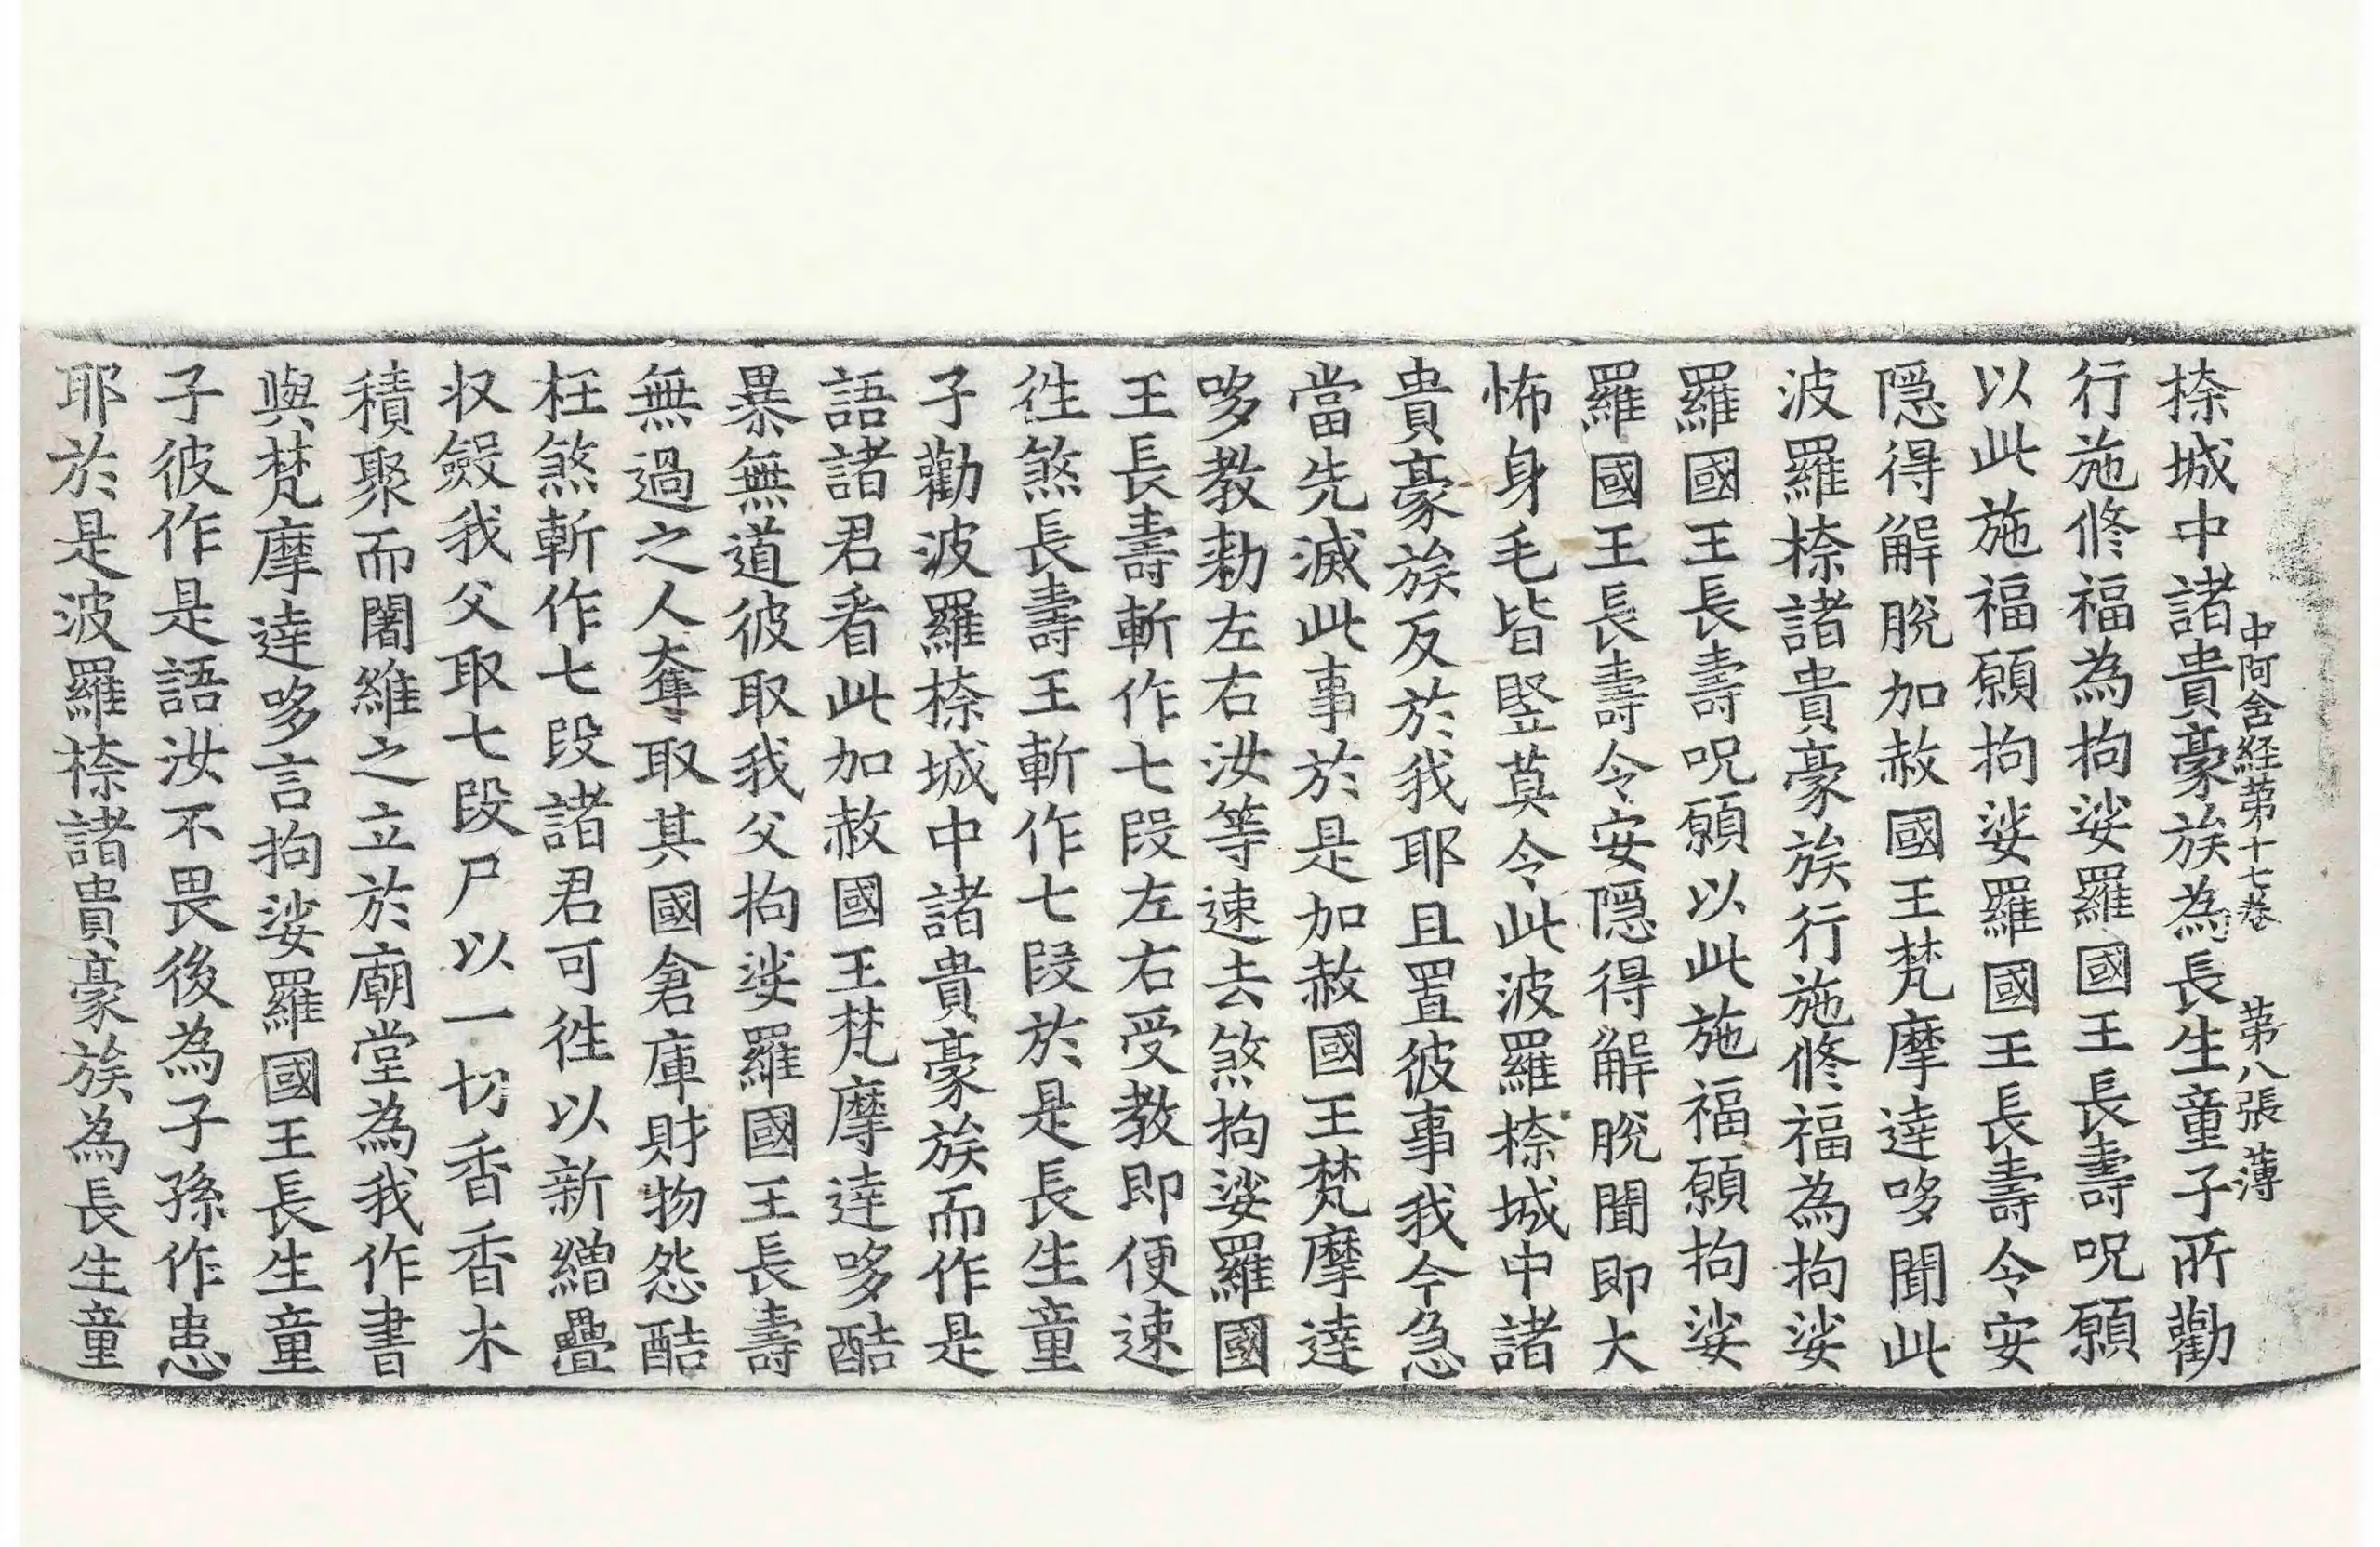 中阿含経第十七巻 第八張 薄
㮈城中諸貴豪族為長生童子所勸
行施修福為拘娑羅國王長壽呪願
以此施福願拘娑羅國王長壽令安
隱得解脫加赦國王梵摩達哆聞此
波羅㮈諸貴豪族行施修福為拘娑
羅國王長壽呪願以此施福願拘娑
羅國王長壽令安隱得解脫聞即大
怖身毛皆竪莫令此波羅㮈城中諸
貴豪族反於我耶且置彼事我今急
當先滅此事於是加赦國王梵摩達
哆教勑左右汝等速去煞拘娑羅國
王長壽斬作七段左右受教即便速
徃煞長壽王斬作七段於是長生童
子勸波羅㮈城中諸貴豪族而作是
語諸君看此加赦國王梵摩達哆酷
暴無道彼取我父拘娑羅國王長壽
無過之人奪取其國倉庫財物怨酷
枉煞斬作七段諸君可徃以新繒疊
収斂我父取七段尸以一切香香木
積聚而闍維之立於廟堂為我作書
與梵摩達哆言拘娑羅國王長生童
子彼作是語汝不畏後為子孫作患
耶於是波羅㮈諸貴豪族為長生童